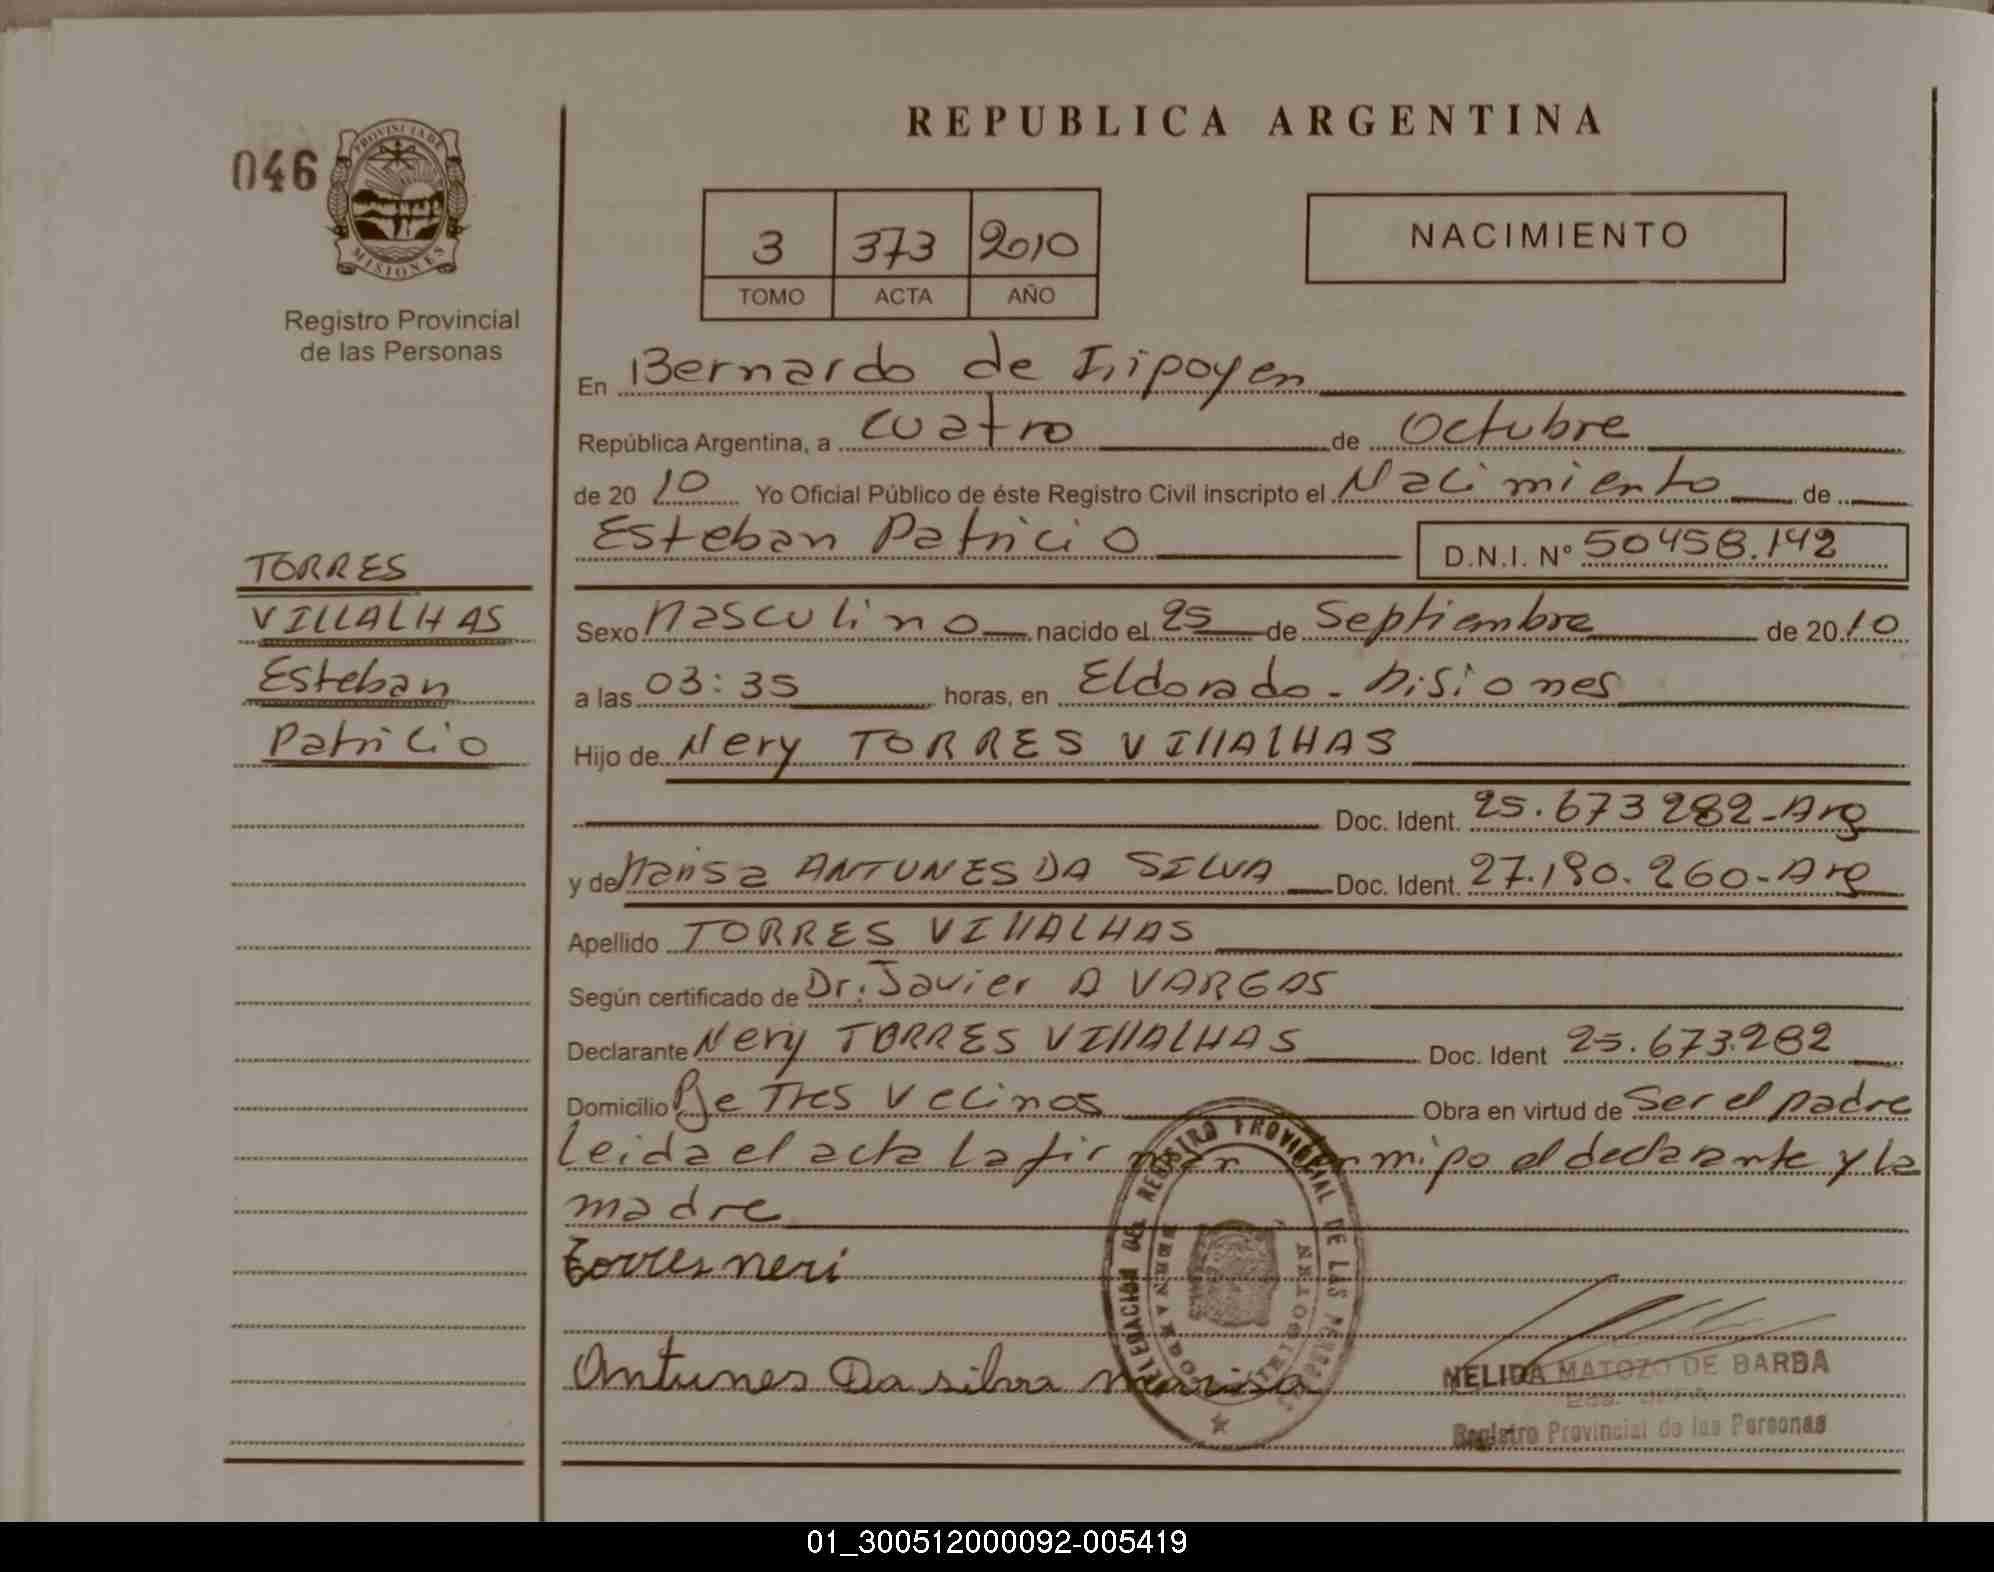 REPUBLICA ARGENTINA
046
PROVINCIA DE
MISIONES
Registro Provincial
de las Personas
3 373 2010
TOMO ACTA AÑO
NACIMIENTO
En Bernardo de Iripoyen
República Argentina, a cuatro de Octubre
de 20 10 Yo Oficial Público de éste Registro Civil inscripto el Nacimiento de
Esteban Patricio D.N.I. Nº 50458.142
TORRES
VILLALHAS
Esteban
Patricio
Sexo Masculino nacido el 25 de Septiembre de 20 10
a las 03:35 horas, en Eldorado - Misiones
Hijo de Nery TORRES VIllALHAS
Doc. Ident. 25.673282-Arg
y de Marisa ANTUNES DA SILVA Doc. Ident. 27.190.260-Arg
Apellido TORRES VIllALHAS
Según certificado de Dr. Javier A VARGAS
Declarante Nery TORRES VIllALHAS Doc. Ident 25.673.282
Domicilio Pje Tres Vecinos Obra en virtud de Ser el padre
Leida el acta la firman conmigo el declarante y la
madre
torres neri
Antunes Da silva marisa
DELEGACIÓN DEL REGISTRO PROVINCIAL DE LAS PERSONAS
BERNARDO DE IRIGOYEN
NELIDA MATOZO DE BARBA
Registro Provincial de las Personas
01_300512000092-005419